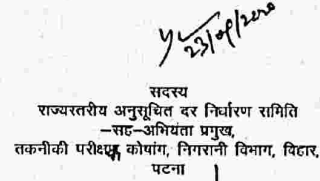 23/09/2020
सदस्य
राज्यस्तरीय अनुसूचित दर निर्धारण समिति
–सह–अभियंता प्रमुख,
तकनीकी परीक्षण कोषांग, निगरानी विभाग, बिहार,
पटना